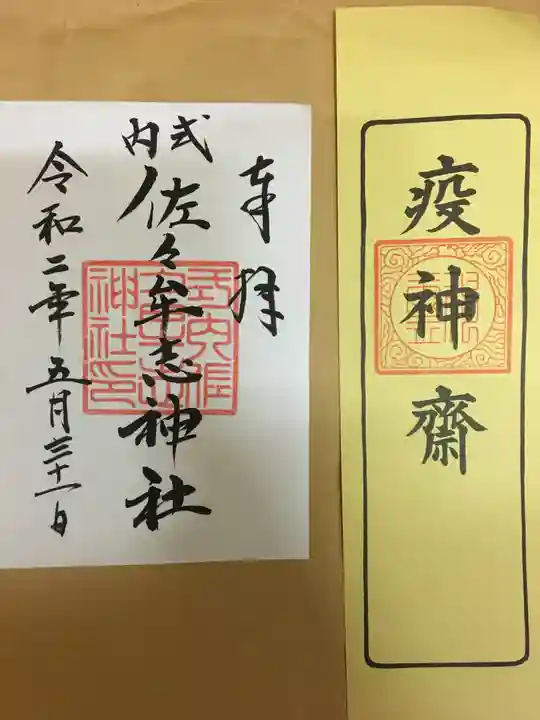 疫神齋
奉拝
式内
佐々牟志神社
令和二年五月三十一日